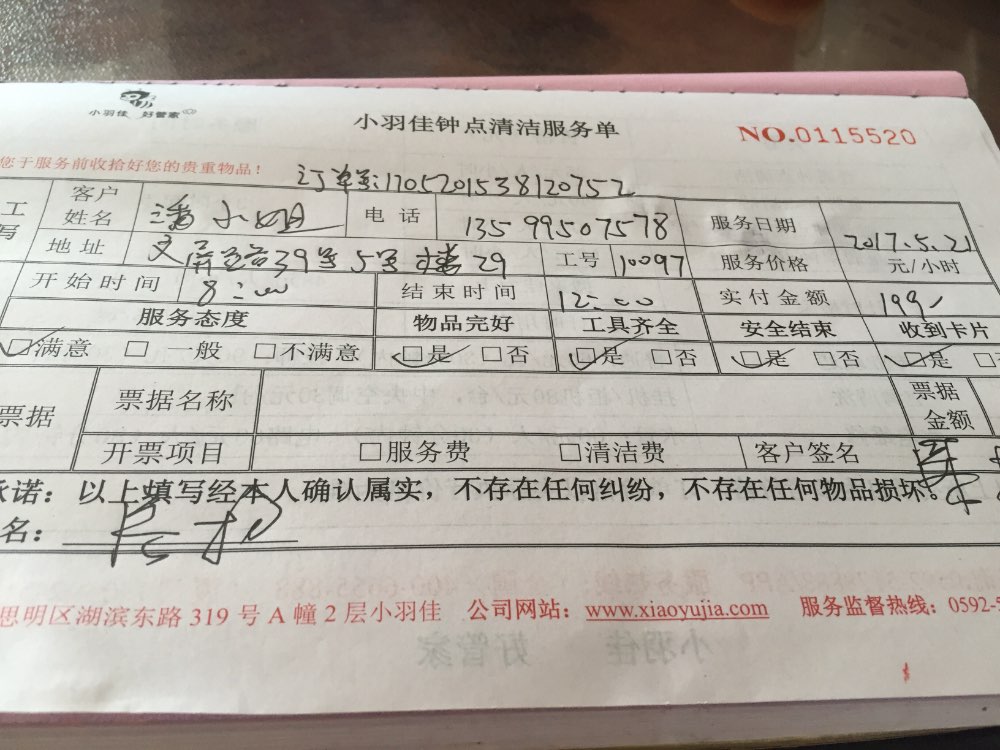 小羽佳 好管家
小羽佳钟点清洁服务单
NO.0115520
您于服务前收拾好您的贵重物品！
订单号:1705201538120752
工 客户姓名 潘小姐 电话 13599507578 服务日期 2017.5.21
写 地址 文屏路39号5号楼29 工号 10097 服务价格 元/小时
开始时间 8:00 结束时间 12:00 实付金额 199
服务态度 物品完好 工具齐全 安全结束 收到卡片
☑满意 □一般 □不满意 ☑是 □否 ☑是 □否 ☑是 □否 ☑是 □否
票据 票据名称 票据金额
开票项目 □服务费 □清洁费 客户签名
承诺：以上填写经本人确认属实，不存在任何纠纷，不存在任何物品损坏。
名：
思明区湖滨东路319号A幢2层小羽佳 公司网站：www.xiaoyujia.com 服务监督热线：0592-5